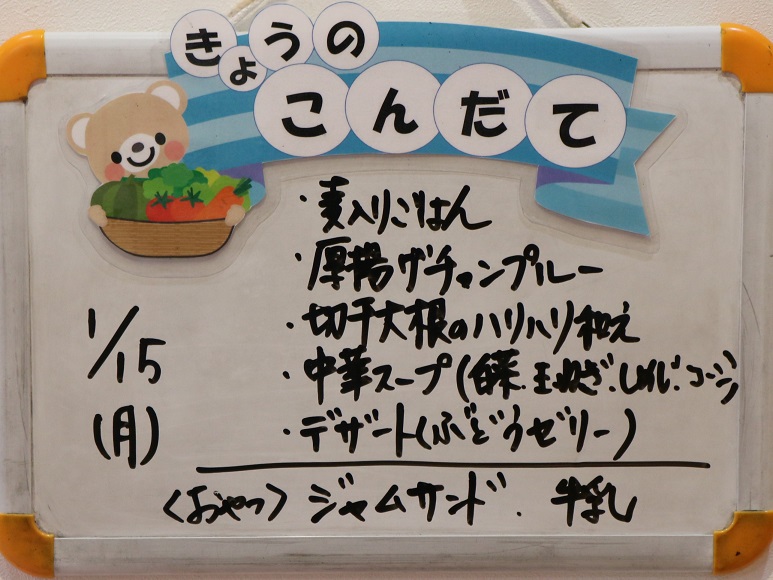 きょうの
こんだて
1/15
(月)
・麦入りごはん
・厚揚げチャンプルー
・切干大根のハリハリ和え
・中華スープ(白菜.玉ねぎ.しめじ.コーン)
・デザート(ぶどうゼリー)
〈おやつ〉ジャムサンド.牛乳